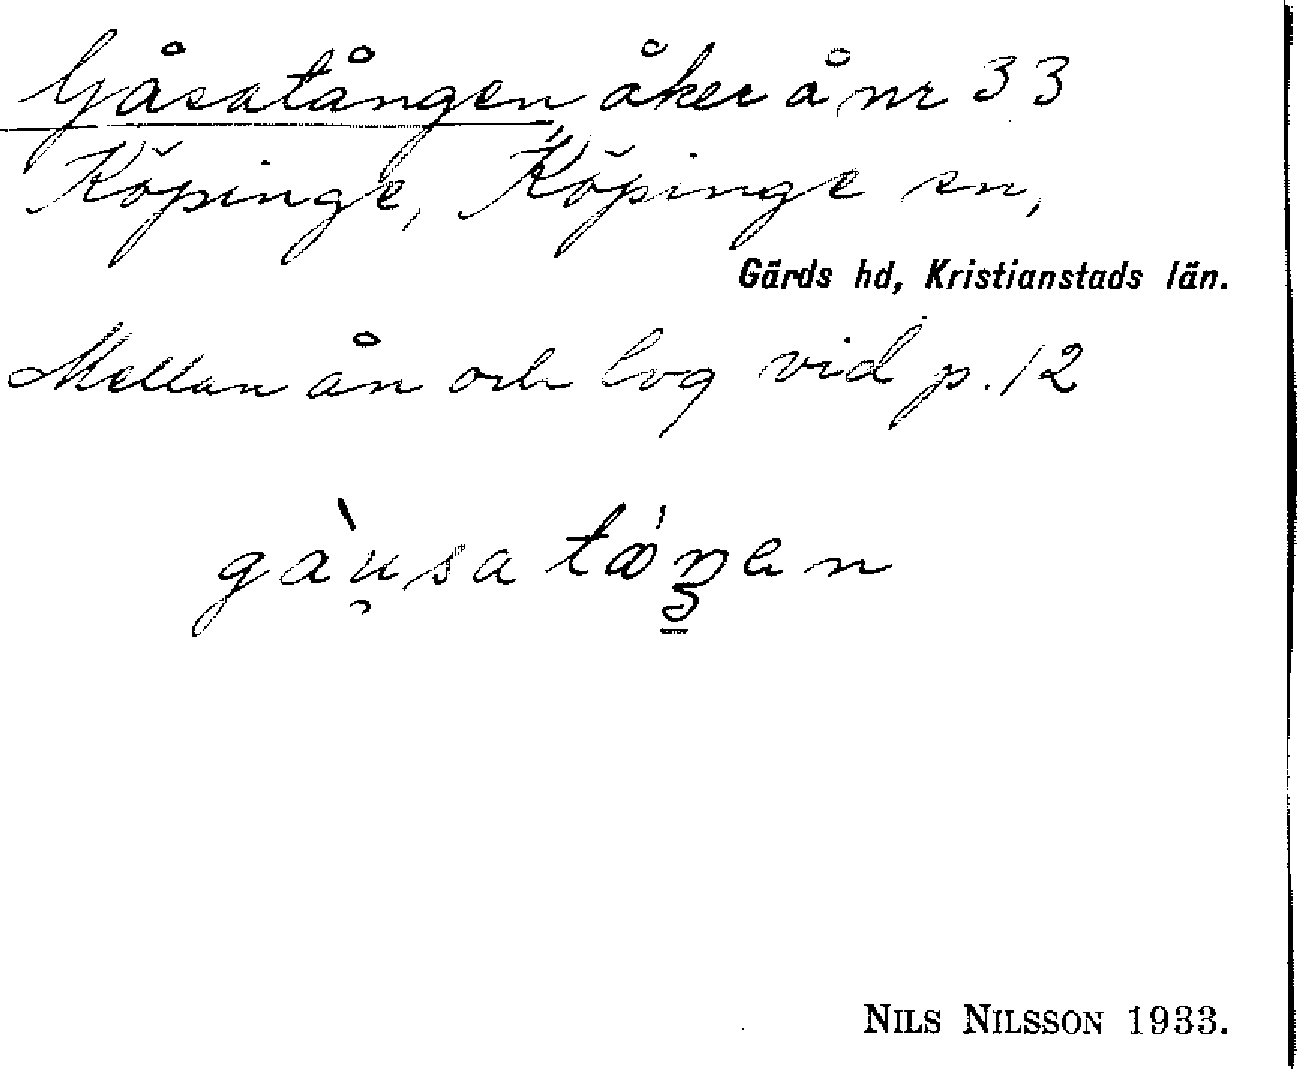 Gåsatången åker å nr 33
Köpinge, Köpinge sn,
Gärds hd, Kristianstads län.
Mellan ån och lvg vid p. 12
gàu̯sa táŋen
NILS NILSSON 1933.